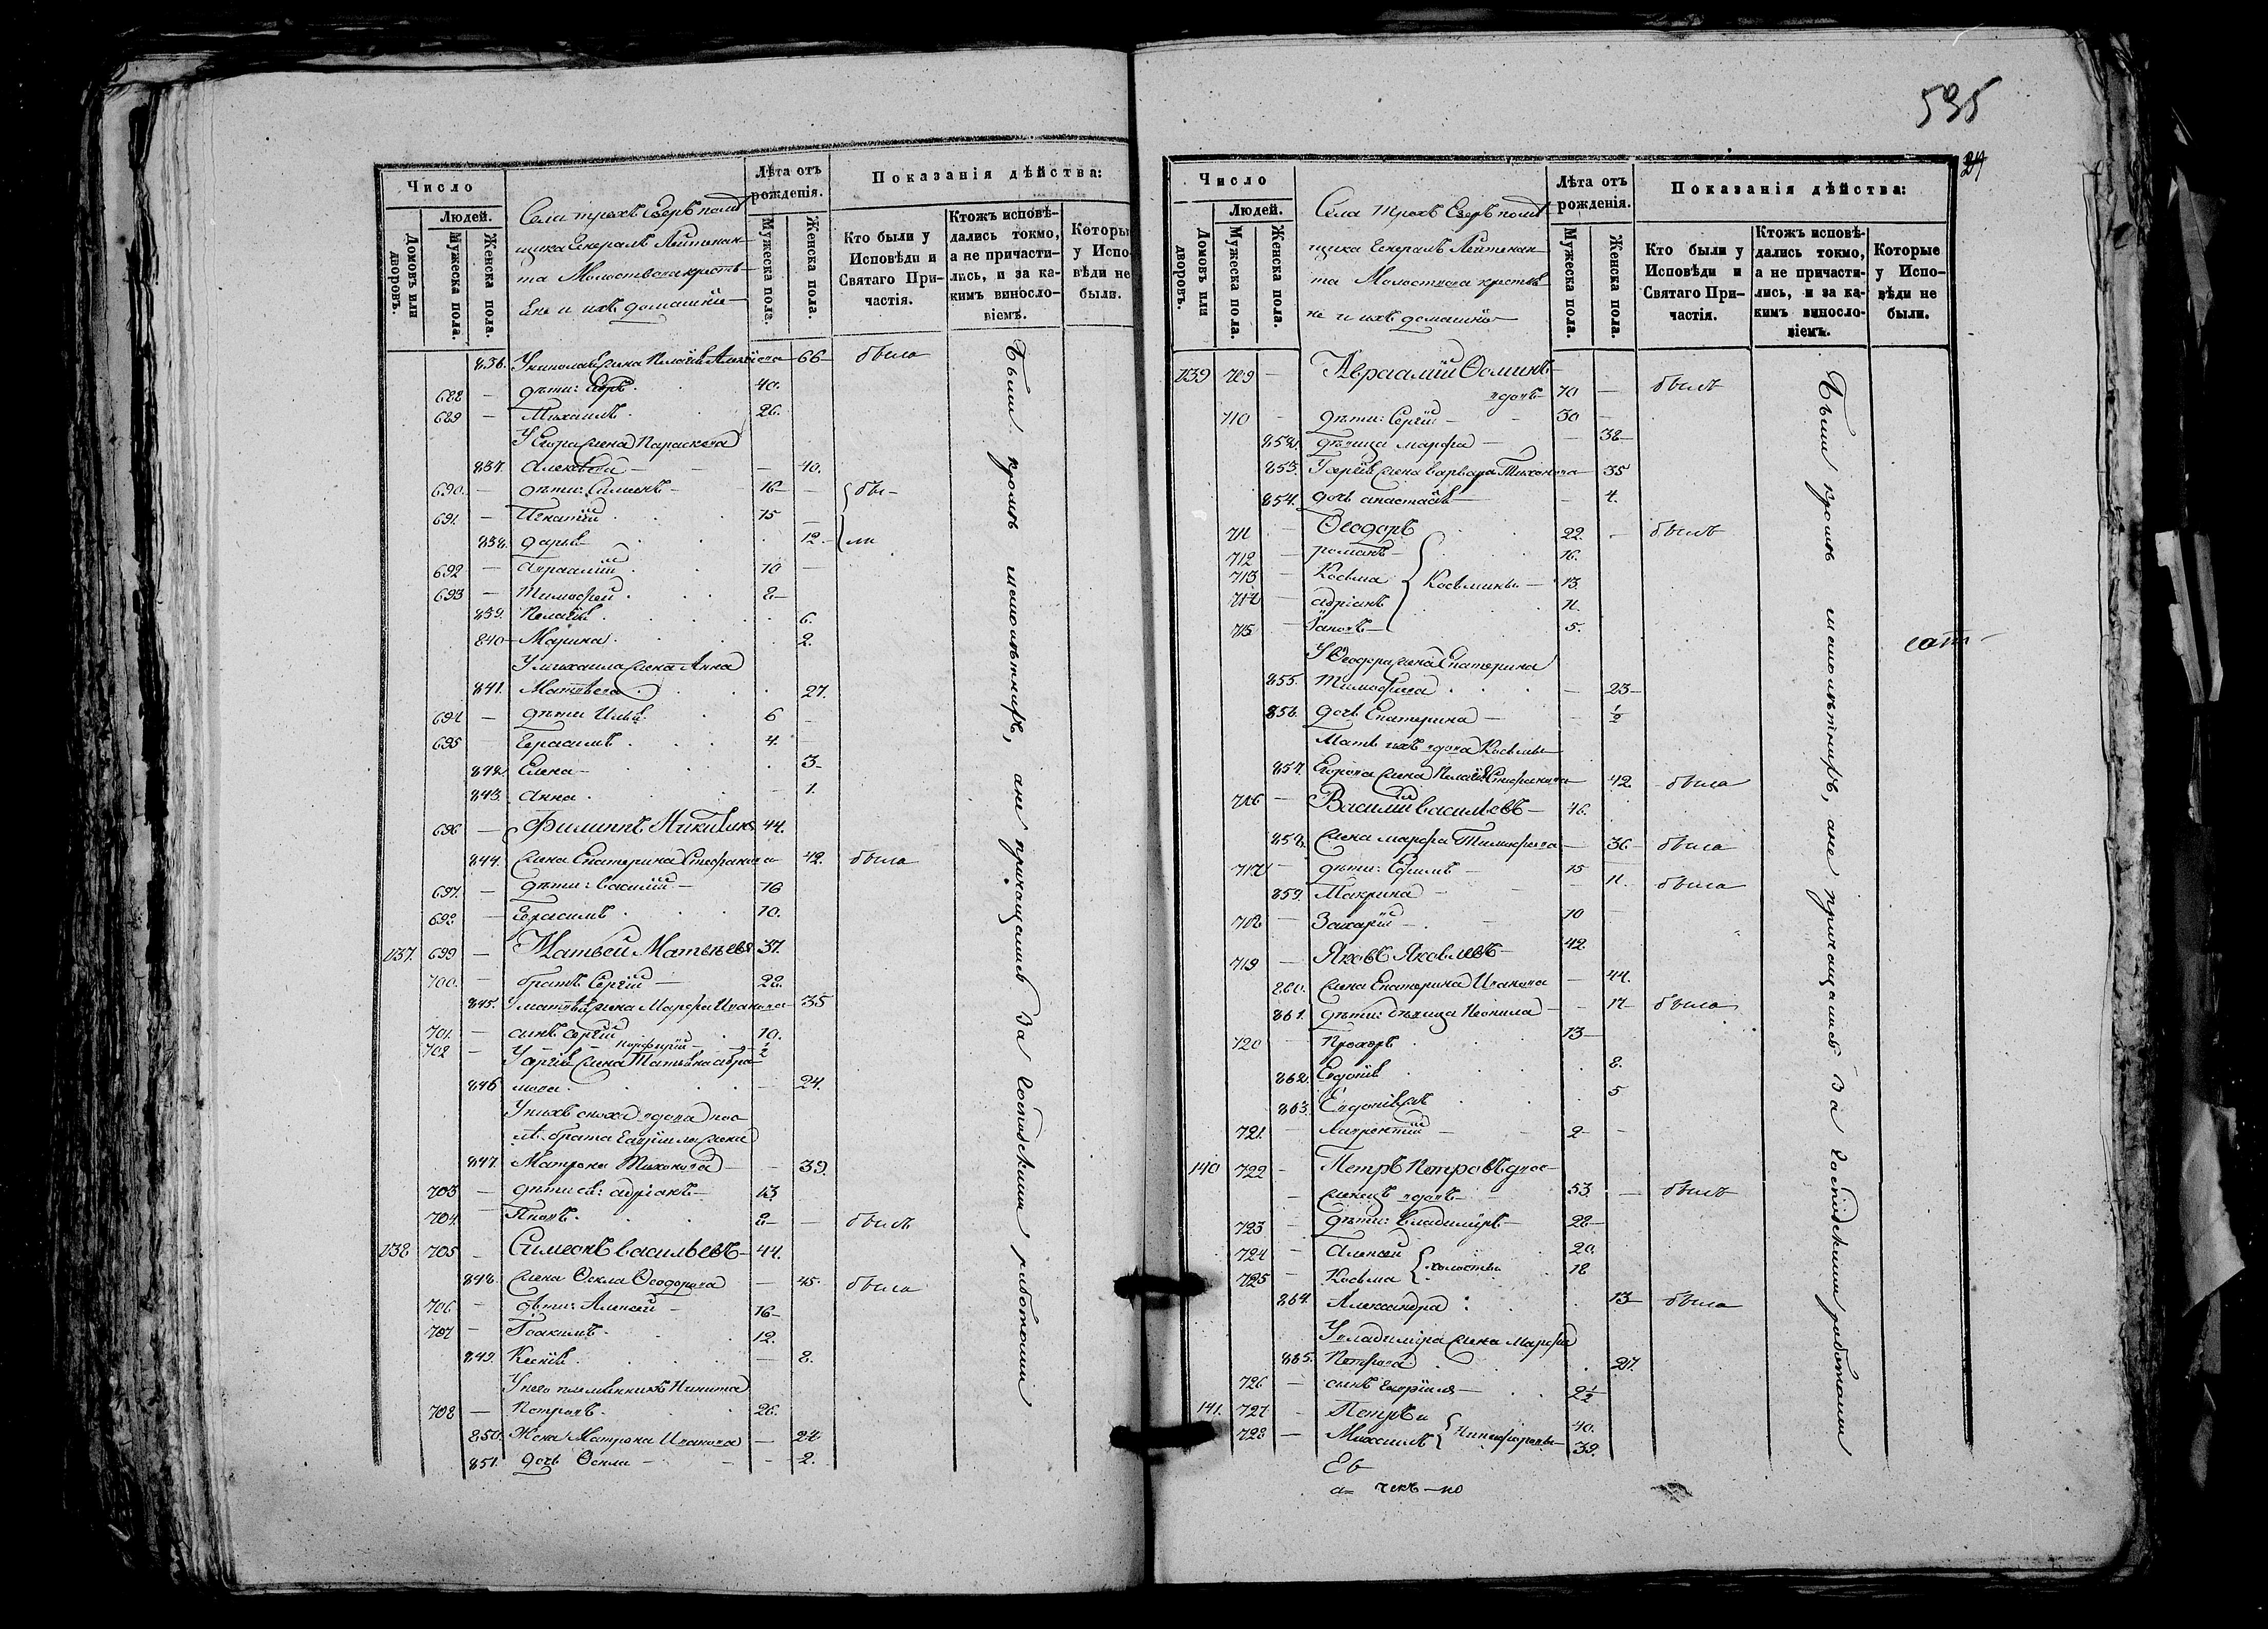 Число
Людей.
Домовъ или дворовъ.
Мужеска пола.
Женска пола.
Села трехъ Езеръ помѣ
щика Генералъ Лейтенан
та Молоствова крестья
не и ихъ домашніе
Лѣта отъ рожденія.
Мужеска пола.
Женска пола.
Показанія дѣйства:
Кто были у Исповѣди и Святаго Причастія.
Ктожъ исповѣдались токмо, а не причастились, и за какимъ винословіемъ.
Которы у Испо- вѣди не были.
836. жена 66 была
688 — дѣти: 40.
689 — Михаилъ 26.
У Егора жена Параскева
837. 40.
690. — дѣти: Симеонъ — 16 — бы-
691. — Игнатій 15 —
838. дарья 12. ли
692 — Авраамій 10 —
693 — Тимофей 8 —
839. Пелагія 6.
840 — Марина 2.
У михаила жена Анна
841. Матвѣева 27.
694 — дѣти Илья 6 —
695 — Герасимъ 4. —
842. Елена — 3 —
843. Анна — 1.
696 — Филиппъ Никитинъ 44.
844. жена Екатерина Стефанова 42. была
697. — дѣти: василій — 16
698 — Герасимъ 10.
137. 699 — Матвей Матвѣевъ 37.
700. — братъ Сергій — 22.
845. У матвѣя жена Марфа Иванова 35
701. — сынъ сергій 10.
702 — Порфирій ½
У сергія жена Татьяна абра
846 мова 24.
У нихъ сноха вдова пос
лѣ брата жена
847. Матрона Тихонова — 39.
703 — дѣти ея: адріанъ — 13
704. Яковъ 8 — — былъ
138 705 — Симеонъ васильевъ — 44.
848. жена Ѳекла Ѳеодорова — 45. была
706 — дѣти: Алексей — 16 —
707 — Іоакимъ 12.
849. Ксенія — 8.
У него племянникъ Никита
708 — Петровъ 26.
850. Жена Матрона Иванова — 24
851. дочь Ѳекла — 2.
Были кромѣ малолѣтнихъ, а не причащались за господскими работами
595
Число
Людей.
Домовъ или дворовъ.
Мужеска пола.
Женска пола.
Села трехъ Езеръ помѣ
щика Генералъ Лейтенан
та Молоствова крестья
не и ихъ домашніе
Лѣта отъ рожденія.
Мужеска пола.
Женска пола.
Показанія дѣйства:
Кто были у Исповѣди и Святаго Причастія.
Ктожъ исповѣдались токмо, а не причастились, и за какимъ винословіемъ.
Которые у Испо- вѣди не были.
139 709 — Авраамій Ѳоминъ
вдовъ 70 — былъ
710 — дѣти: Сергій — 30 —
852. дѣвица марфа — 38 —
853. У сергія жена варвара Тихонова 35
854. дочь анастасія — 4.
711 — Ѳеодоръ 22. — былъ
712 — романъ — 16.
713 — Косьма Косьмины — 13.
714 — адріанъ 11.
715 — Іаковъ 5.
У Ѳеодора жена Екатерина
855. Тимофеева — 23 —
856. дочь Екатерина — ½
Мать ихъ вдова Косьмы
857. Егорова жена Пелагія Стефанова 42. была
716 — Василій васильевъ — 46.
858. жена марфа Тимофеева — 36 — была
717 — дѣти: Ефимъ — 15
859. Макрина — 11. была
718 — Захарій 10 —
719 — Яковъ Яковлевъ — 42.
860. жена Екатерина Иванова — 44.
861. дѣти: дѣвица Неонила — 17 — была
720 — Прохоръ 13 —
862. Евдокія 8.
863. 5
721. — Лаврентій — 2 —
140 722 — Петръ Петровъ
вдовъ — 53. — былъ
723 — дѣти: владиміръ — 22 —
724 — Алексей 20.
холосты
725 — Косьма 18
864. Александра 13 — была
У владиміра жена Марфа
865. Петрова 27.
726 — сынъ 2½
141. 727 — Петръ и 40.
728 — Михаилъ Никифоровы — 39.
Были кромѣ малолѣтнихъ, а не причащались за господскими работами